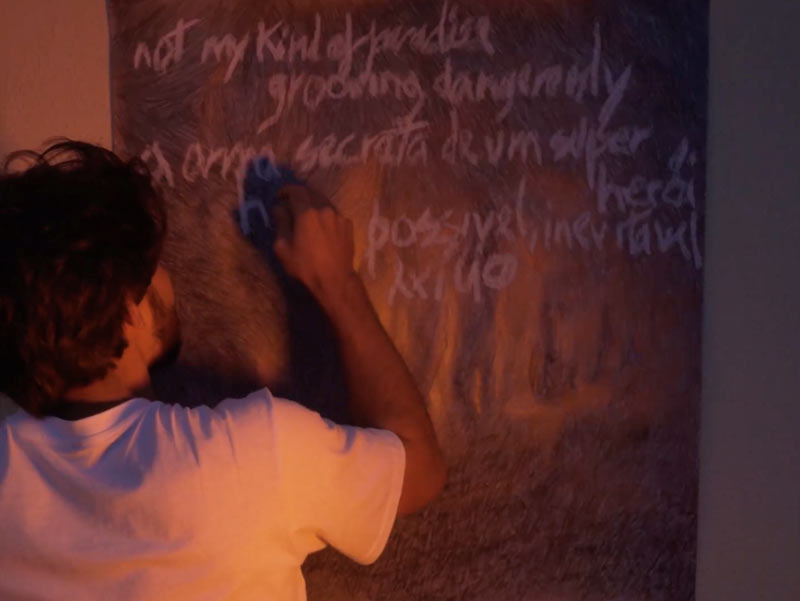 not my kind of paradise
grooving dangerously
a arma secreta de um super
herói
h possível, inevitável